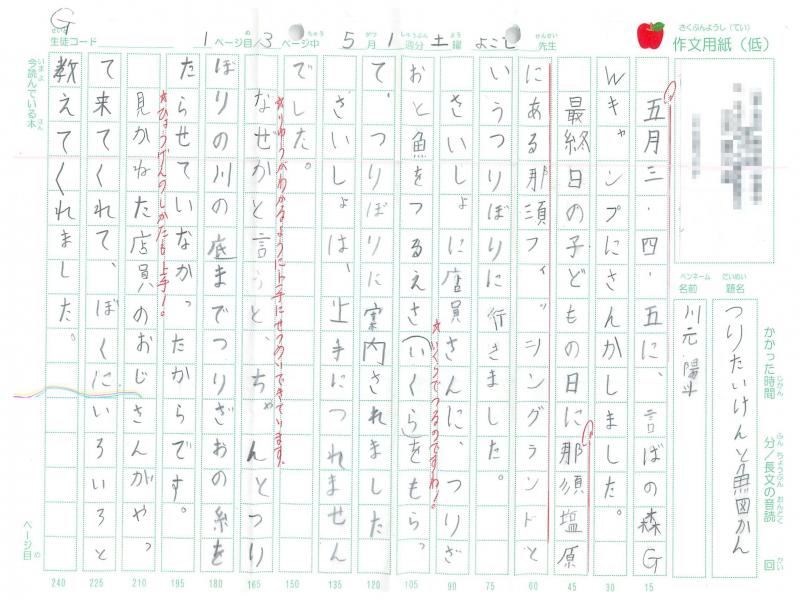 さくぶんようし（てい）
作文用紙（低）
せいと
生徒コード G
1 ページ目/3 ページ中 5 月 1 週分 土 曜 よこし 先生
かかった時間　分／長文の音読　回
だいめい
題名
つりたいけんと魚図かん
ペンネーム
名前
川元 陽斗
五月三・四・五に、言ばの森G
Wキャンプにさんかしました。
最終日の子どもの日に那須塩原
にある那須フィッシングランドと
いうつりぼりに行きました。
さいしょに店員さんに、つりざ
おと魚をつるえさ(いくら)をもらっ
て、つりぼりに案内されました
さいしょは、上手につれません
でした。
なぜかと言うと、ちゃんとつり
ぼりの川の底までつりざおの糸を
たらせていなかったからです。
見かねた店員のおじさんがやっ
て来てくれて、ぼくにいろいろと
教えてくれました。
★いくらでつるのですね！
★りゆうがわかるように上手にせつめいできています。
★ひょうげんのしかたも上手！
今読んでいる本
ページ目
15 30 45 60 75 90 105 120 135 150 165 180 195 210 225 240